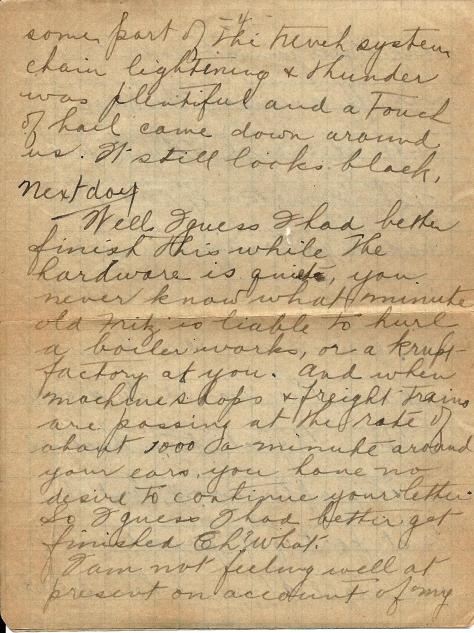 -4-
some part of the trench system
chain lightening & thunder
was plentiful and a Touch
of hail came down around
us. It still looks black,
Next day
Well I guess I had better
finish this while The
hardware is quiete, you
never know what minute
old Fritz is liable to hurl
a boiler works, or a Krupt
factory at you. And when
machine shops & freight trains
are passing at the rate of
about 1000 a minute around
your ears, you have no
desire to continue your letter
So I guess I had better get
finished Eh! What.
I am not feeling well at
present on account of my